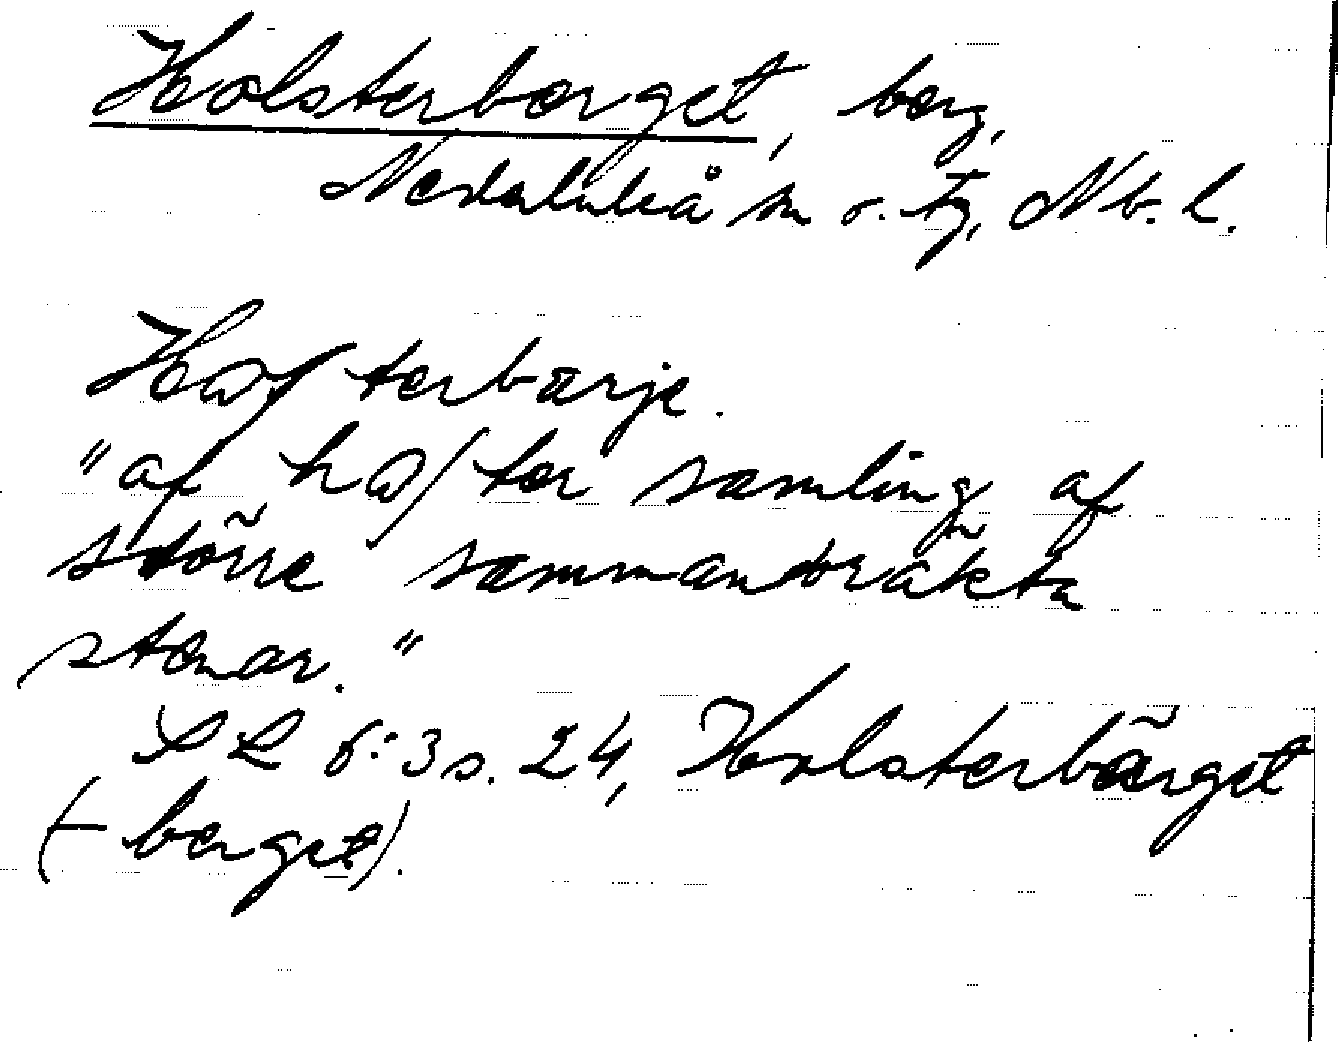 Holsterberget, berg,
Nederluleå sn o. tg, Nb. l.
Hɷʃterbärje.
"af hɷʃter samling af
större sammanträkta
stenar."
LL 6:3 s. 24, Holsterbärget
(-berget).